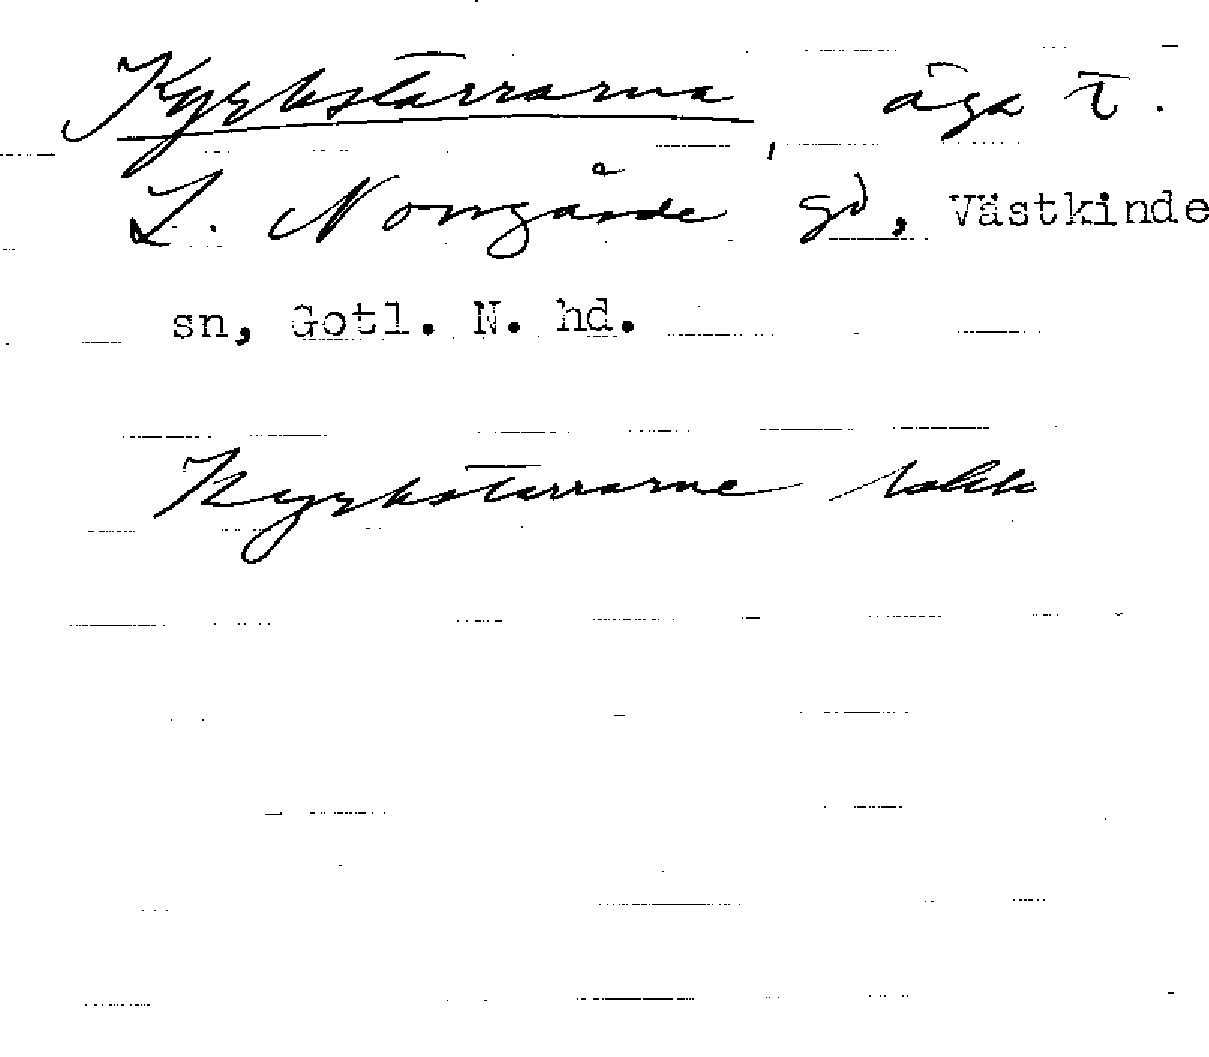 Kyrkstärrarna, äga t.
L. Norrgårde gd, Västkinde
sn, Gotl. N. hd.
Kyrkstarrarne